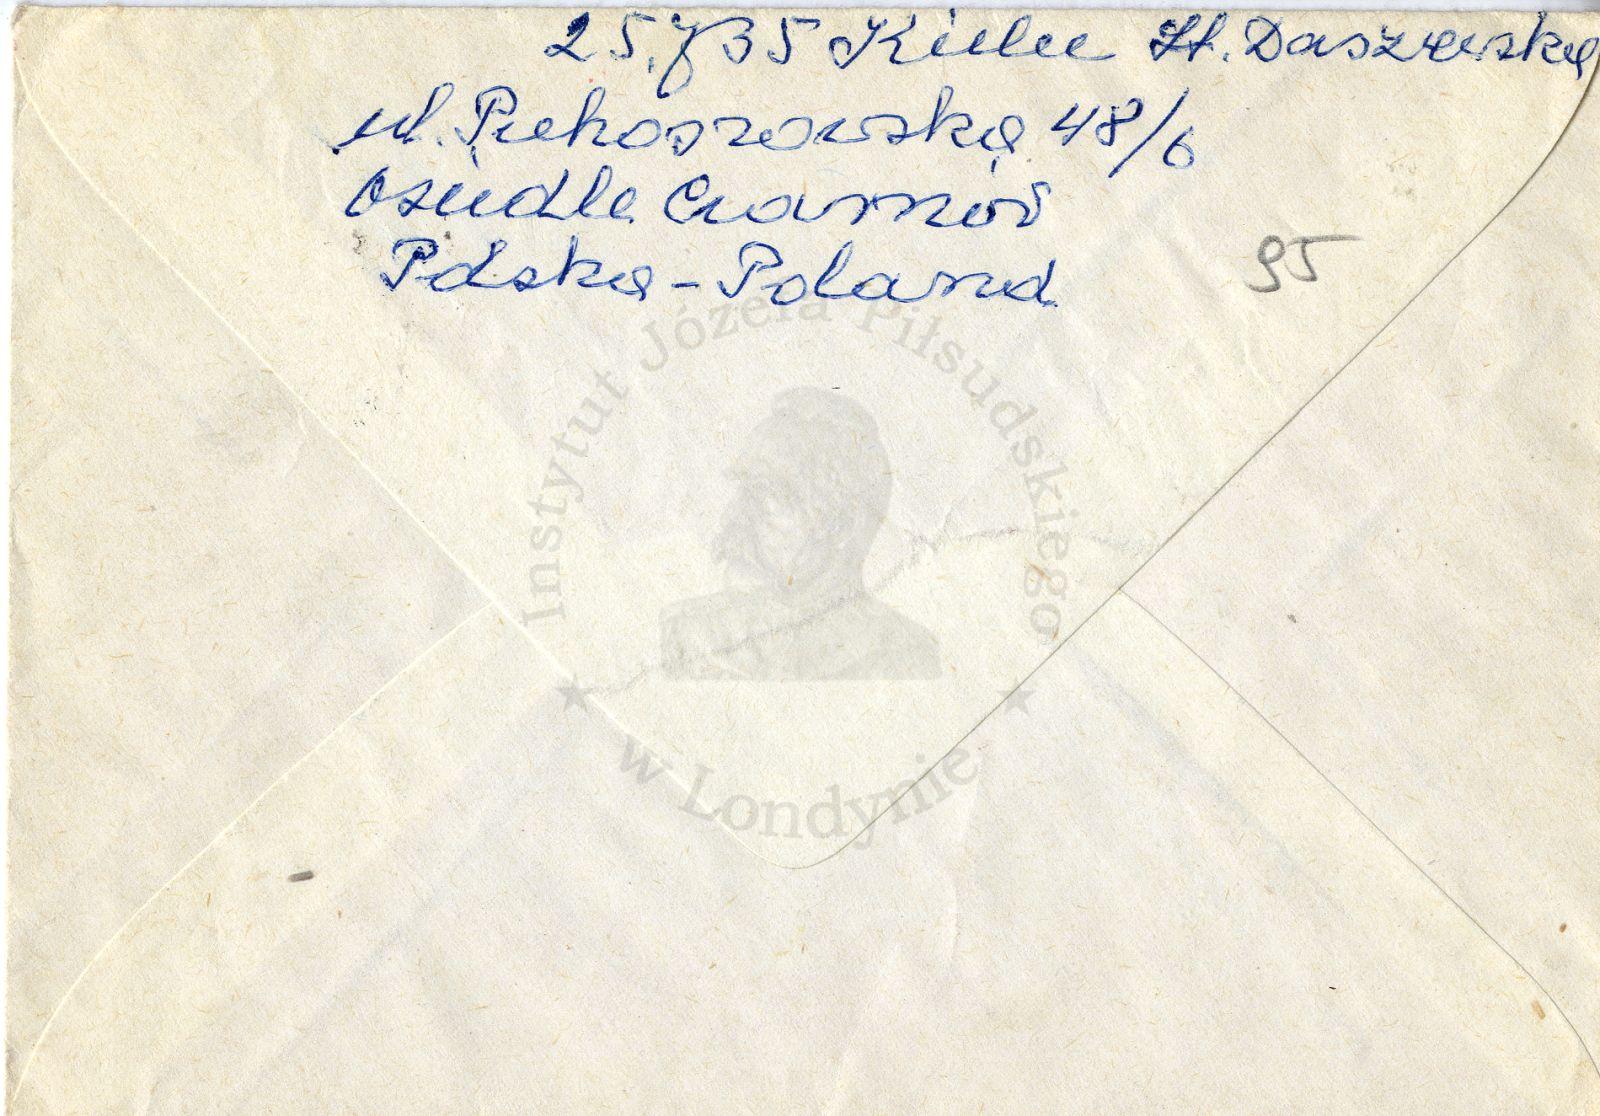 25.735 Kielce St. Daszewska
ul. Piekoszowska 48/6
Osiedle Czarnów
Polska - Poland
95
Instytut Józefa Piłsudskiego
w Londynie